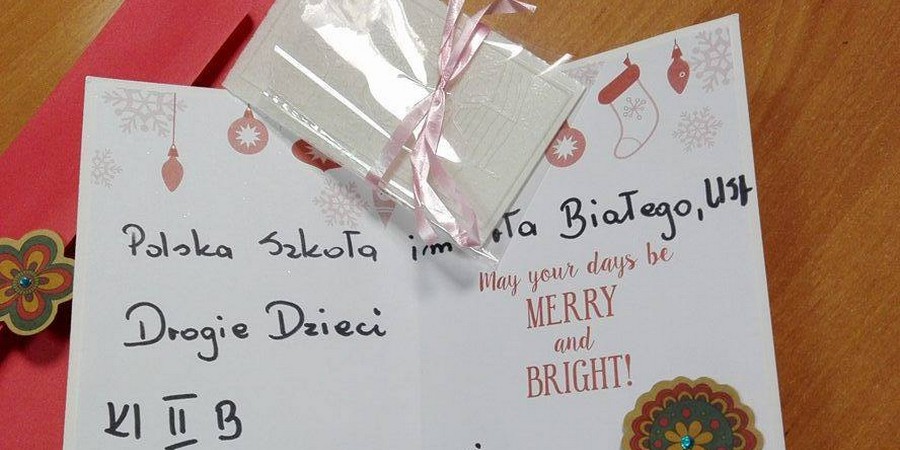 Polska Szkoła im Białego, Ust
May your days be
MERRY
and
BRIGHT!
Drogie Dzieci
Kl II B